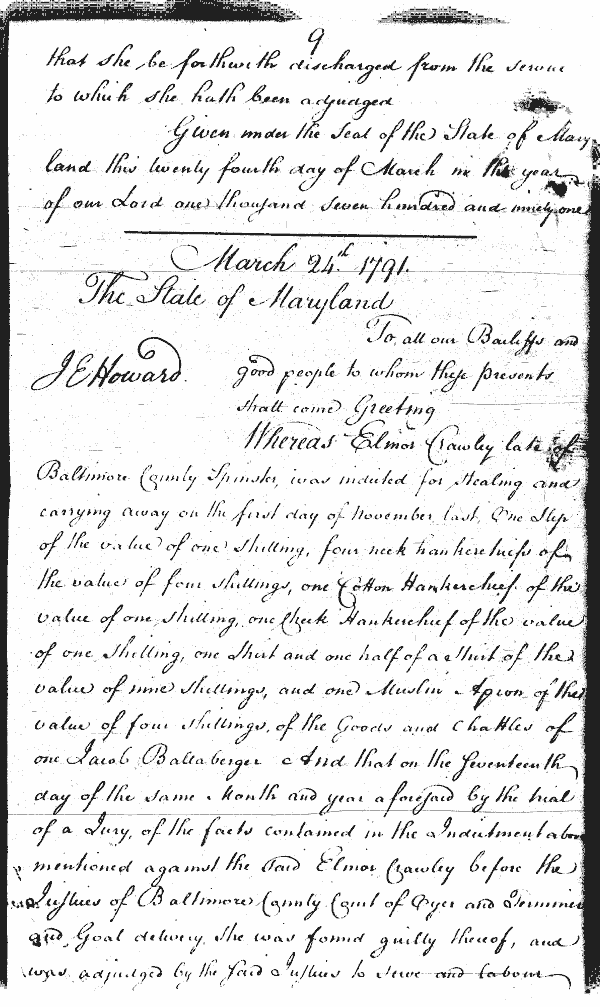 9
that she be forthwith discharged from the service
to which she hath been adjudged
Given under the Seal of the State of Mary
land this twenty fourth day of March in the year
of our Lord one thousand seven hundred and ninety one
March 24th. 1791.
The State of Maryland
To all our Bailiffs and
JEHoward. good people to whom these presents
shall come Greeting
Whereas Elinor Crawley late of
Baltimore County Spinster, was indicted for stealing and
carrying away on the first day of November last, One Slip
of the value of one shilling, four neck hankerchiefs of
the value of four shillings, one Cotton Hankerchief of the
value of one shilling, one Check Hankerchief of the value
of one shilling, one Shirt and one half of a Shirt of the
value of nine shillings, and one Muslin Apron of the
value of four shillings, of the Goods and Chattles of
one Jacob Baltaberger And that on the Seventeenth
day of the same Month and year aforesaid by the trial
of a Jury, of the facts contained in the Indictment above
mentioned against the said Elinor Crawley before the
Justices of Baltimore County Court of Oyer and Terminer
and Goal delivery, she was found guilty thereof, and
was adjudged by the said Justices to serve and labour